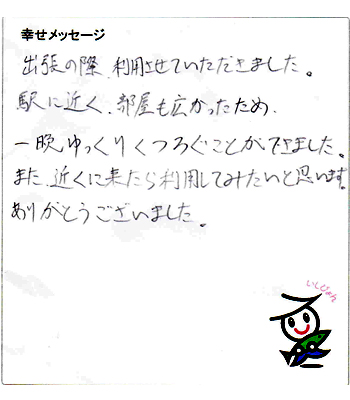 幸せメッセージ
出張の際、利用させていただきました。
駅に近く、部屋も広かったため、
一晩ゆっくりくつろぐことができました。
また、近くに来たら利用してみたいと思います。
ありがとうございました。